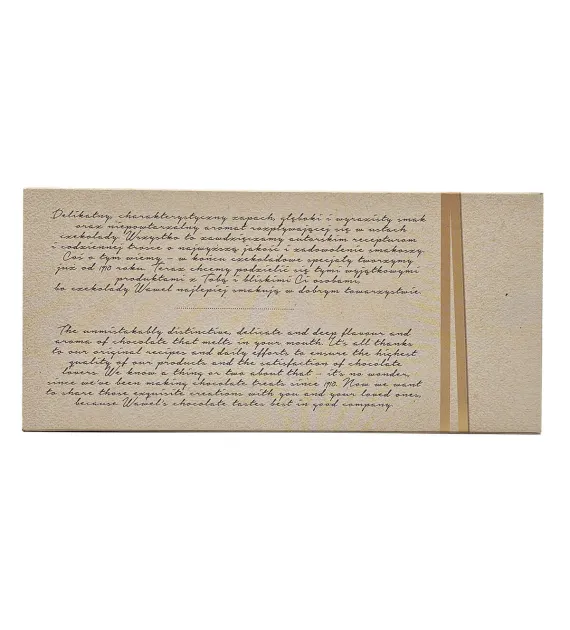 Delikatny, charakterystyczny zapach, głęboki i wyrazisty smak
oraz niepowtarzalny aromat rozpływającej się w ustach
czekolady. Wszystko to zawdzięczamy autorskim recepturom
i codziennej trosce o najwyższą jakość i zadowolenie smakoszy.
Coś o tym wiemy – w końcu czekoladowe specjały tworzymy
już od 1910 roku. Teraz chcemy podzielić się tymi wyjątkowymi
produktami z Tobą i bliskimi Ci osobami,
bo czekolady Wawel najlepiej smakują w dobrym towarzystwie.
The unmistakably distinctive, delicate and deep flavour and
aroma of chocolate that melts in your mouth. It's all thanks
to our original recipes and daily efforts to ensure the highest
quality of our products and the satisfaction of chocolate
lovers. We know a thing or two about that – it's no wonder,
since we've been making chocolate treats since 1910. Now we want
to share those exquisite creations with you and your loved ones,
because Wawel's chocolate tastes best in good company.